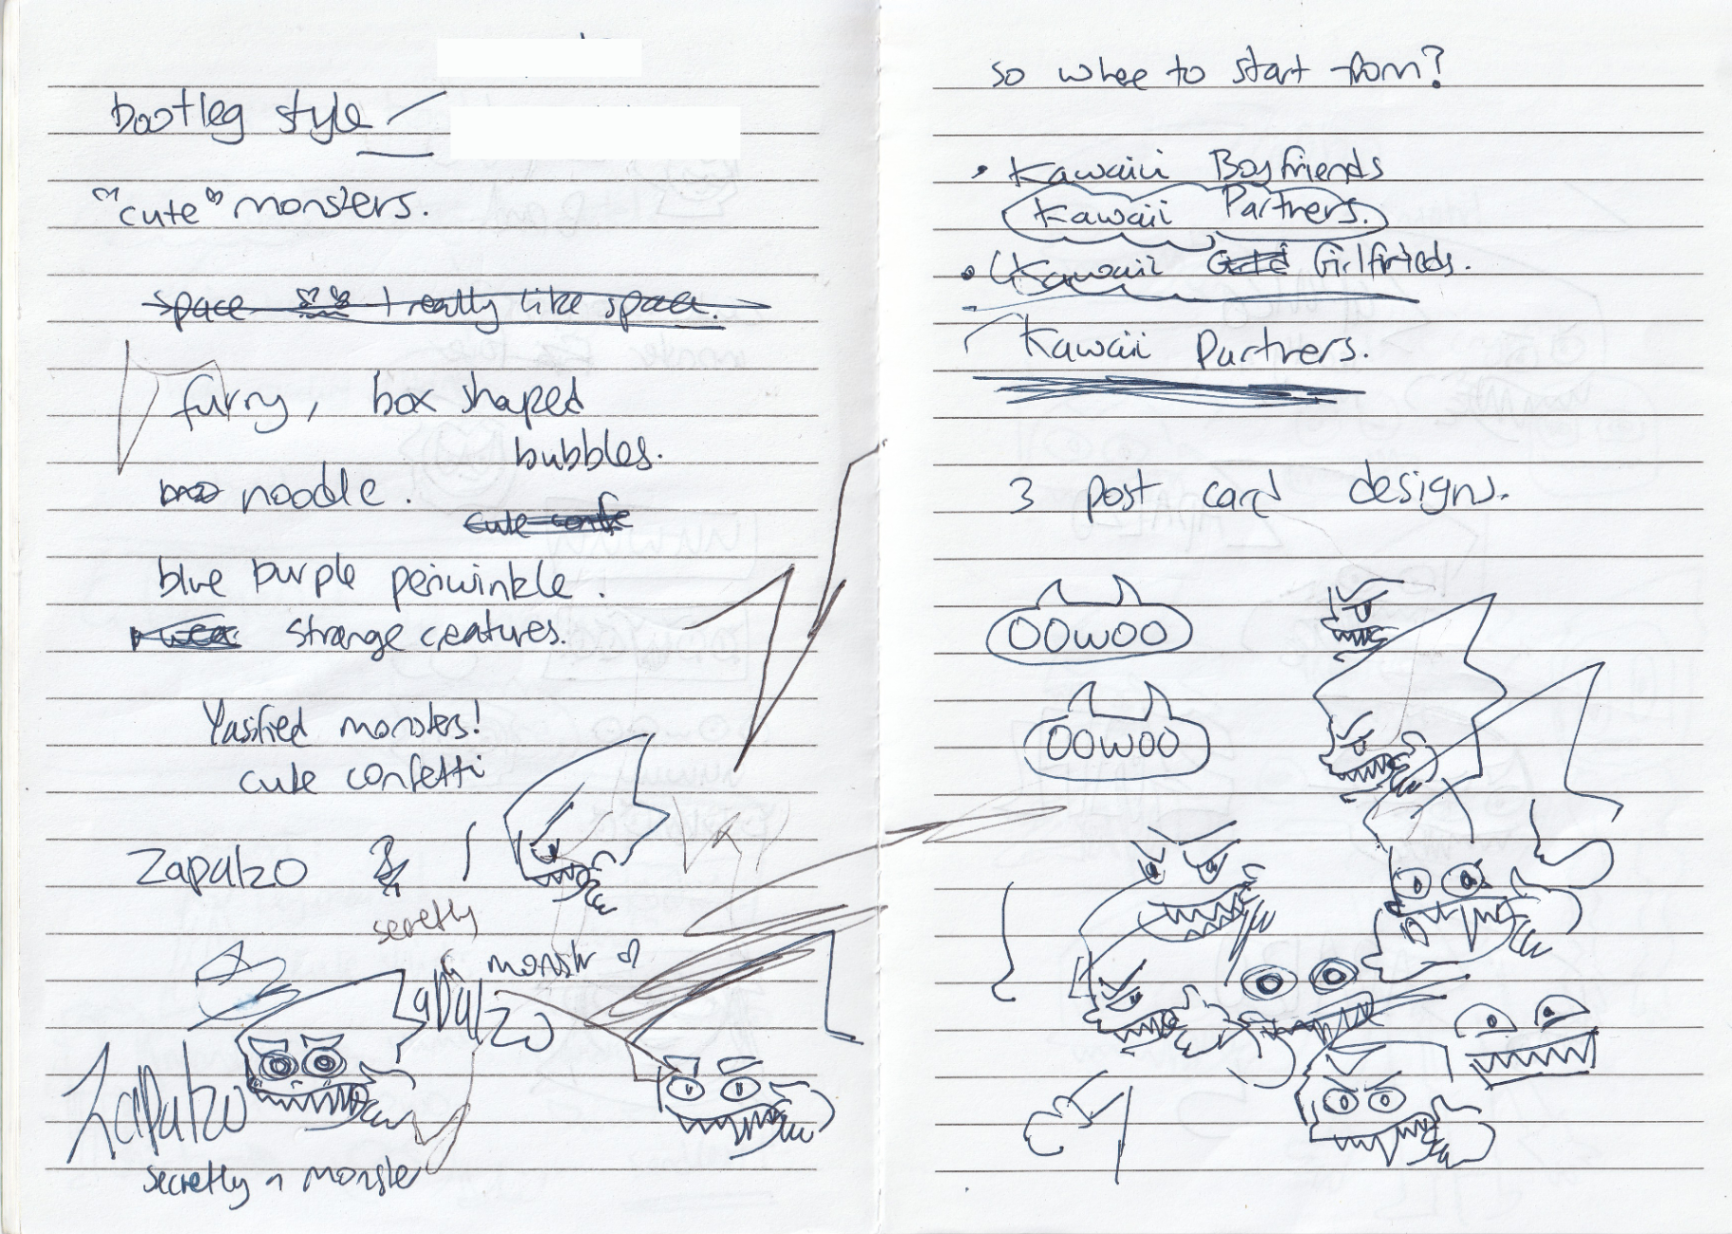 bootleg style
"cute" monsters.
space I really like space.
furry, box shaped
bubbles.
noodle.
cute confe
blue purple periwinkle.
strange creatures.
Yasified monsters!
cute confetti
Zapalzo
secretly
a monstr
Zapalzo
Zapalzo
secretly a monster
so whee to start from?
• Kawaiii Boyfriends
Kawaii Partners.
• Kawaii Girlfrieds.
Kawaii Partners.
3 post card designs.
OOWOO
OOWOO